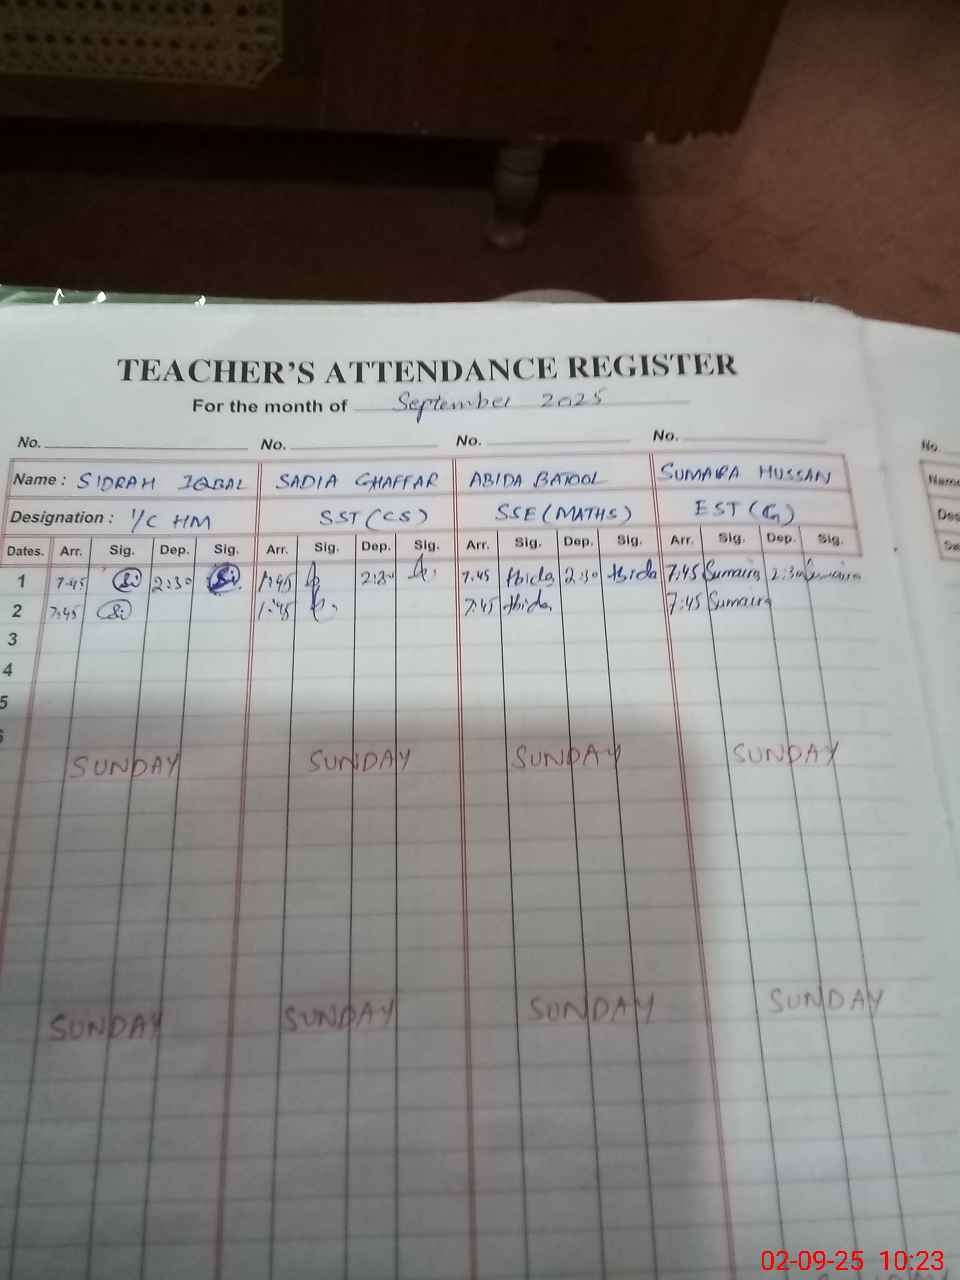 TEACHER'S ATTENDANCE REGISTER
For the month of September 2025
No. No. No. No. No.
Name : SIDRAH IQBAL SADIA GHAFFAR ABIDA BATOOL SUMAIRA HUSSAN Name
Designation : I/C HM SST (CS) SSE (MATHS) EST (G) Des
Dates. Arr. Sig. Dep. Sig. Arr. Sig. Dep. Sig. Arr. Sig. Dep. Sig. Arr. Sig. Dep. Sig.
1 7:45 2:30 7:45 2:30 7:45 Abida 2:30 Abida 7:45 Sumaira 2:30 Sumaira
2 7:45 7:45 7:45 Abida 7:45 Sumaira
3
4
5
6
SUNDAY SUNDAY SUNDAY SUNDAY
SUNDAY SUNDAY SUNDAY SUNDAY
02-09-25 10:23